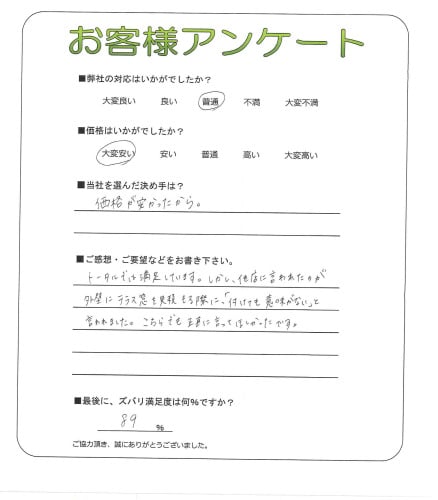 お客様アンケート
■弊社の対応はいかがでしたか？
大変良い 良い 普通 不満 大変不満
■価格はいかがでしたか？
大変安い 安い 普通 高い 大変高い
■当社を選んだ決め手は？
価格が安かったから。
■ご感想・ご要望などをお書き下さい。
トータルでは満足しています。しかし、他店に言われたのが
外壁にテラス窓を見積もる際に、「付けても意味がない」と
言われました。こちらでも正直に言ってほしかったです。
■最後に、ズバリ満足度は何％ですか？
89 ％
ご協力頂き、誠にありがとうございました。